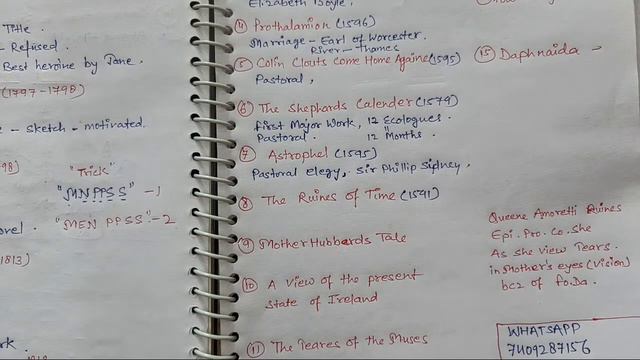 Title.
- Refused.
Best heroine by Jane.
(1797-1798)
- sketch - motivated.
98)
"Trick"
"MNPPSS" - 1
ovel. "MEN PPSS" - 2
1813)
rk.
Elizabeth Boyle.
④ Prothalamion (1596)
Marriage - Earl of Worcester.
River - Thames
⑤ Colin Clouts Come Home Againe (1595)
Pastoral,
⑥ The Shephards Calender (1579)
First Major Work, 12 Ecologues.
Pastoral. 12 Months.
⑦ Astrophel (1595)
Pastoral elegy, Sir Phillip Sidney.
⑧ The Ruines of Time (1591)
⑨ Mother Hubbards Tale
⑩ A View of the present
State of Ireland
⑪ The Teares of the Muses
⑮ Daphnaida -
Queene Amoretti Ruines
Epi. Pro. Co. She
As she view Tears.
in Mother's eyes (Vision)
bcz of Fo.Da.
WHATSAPP
7409287156